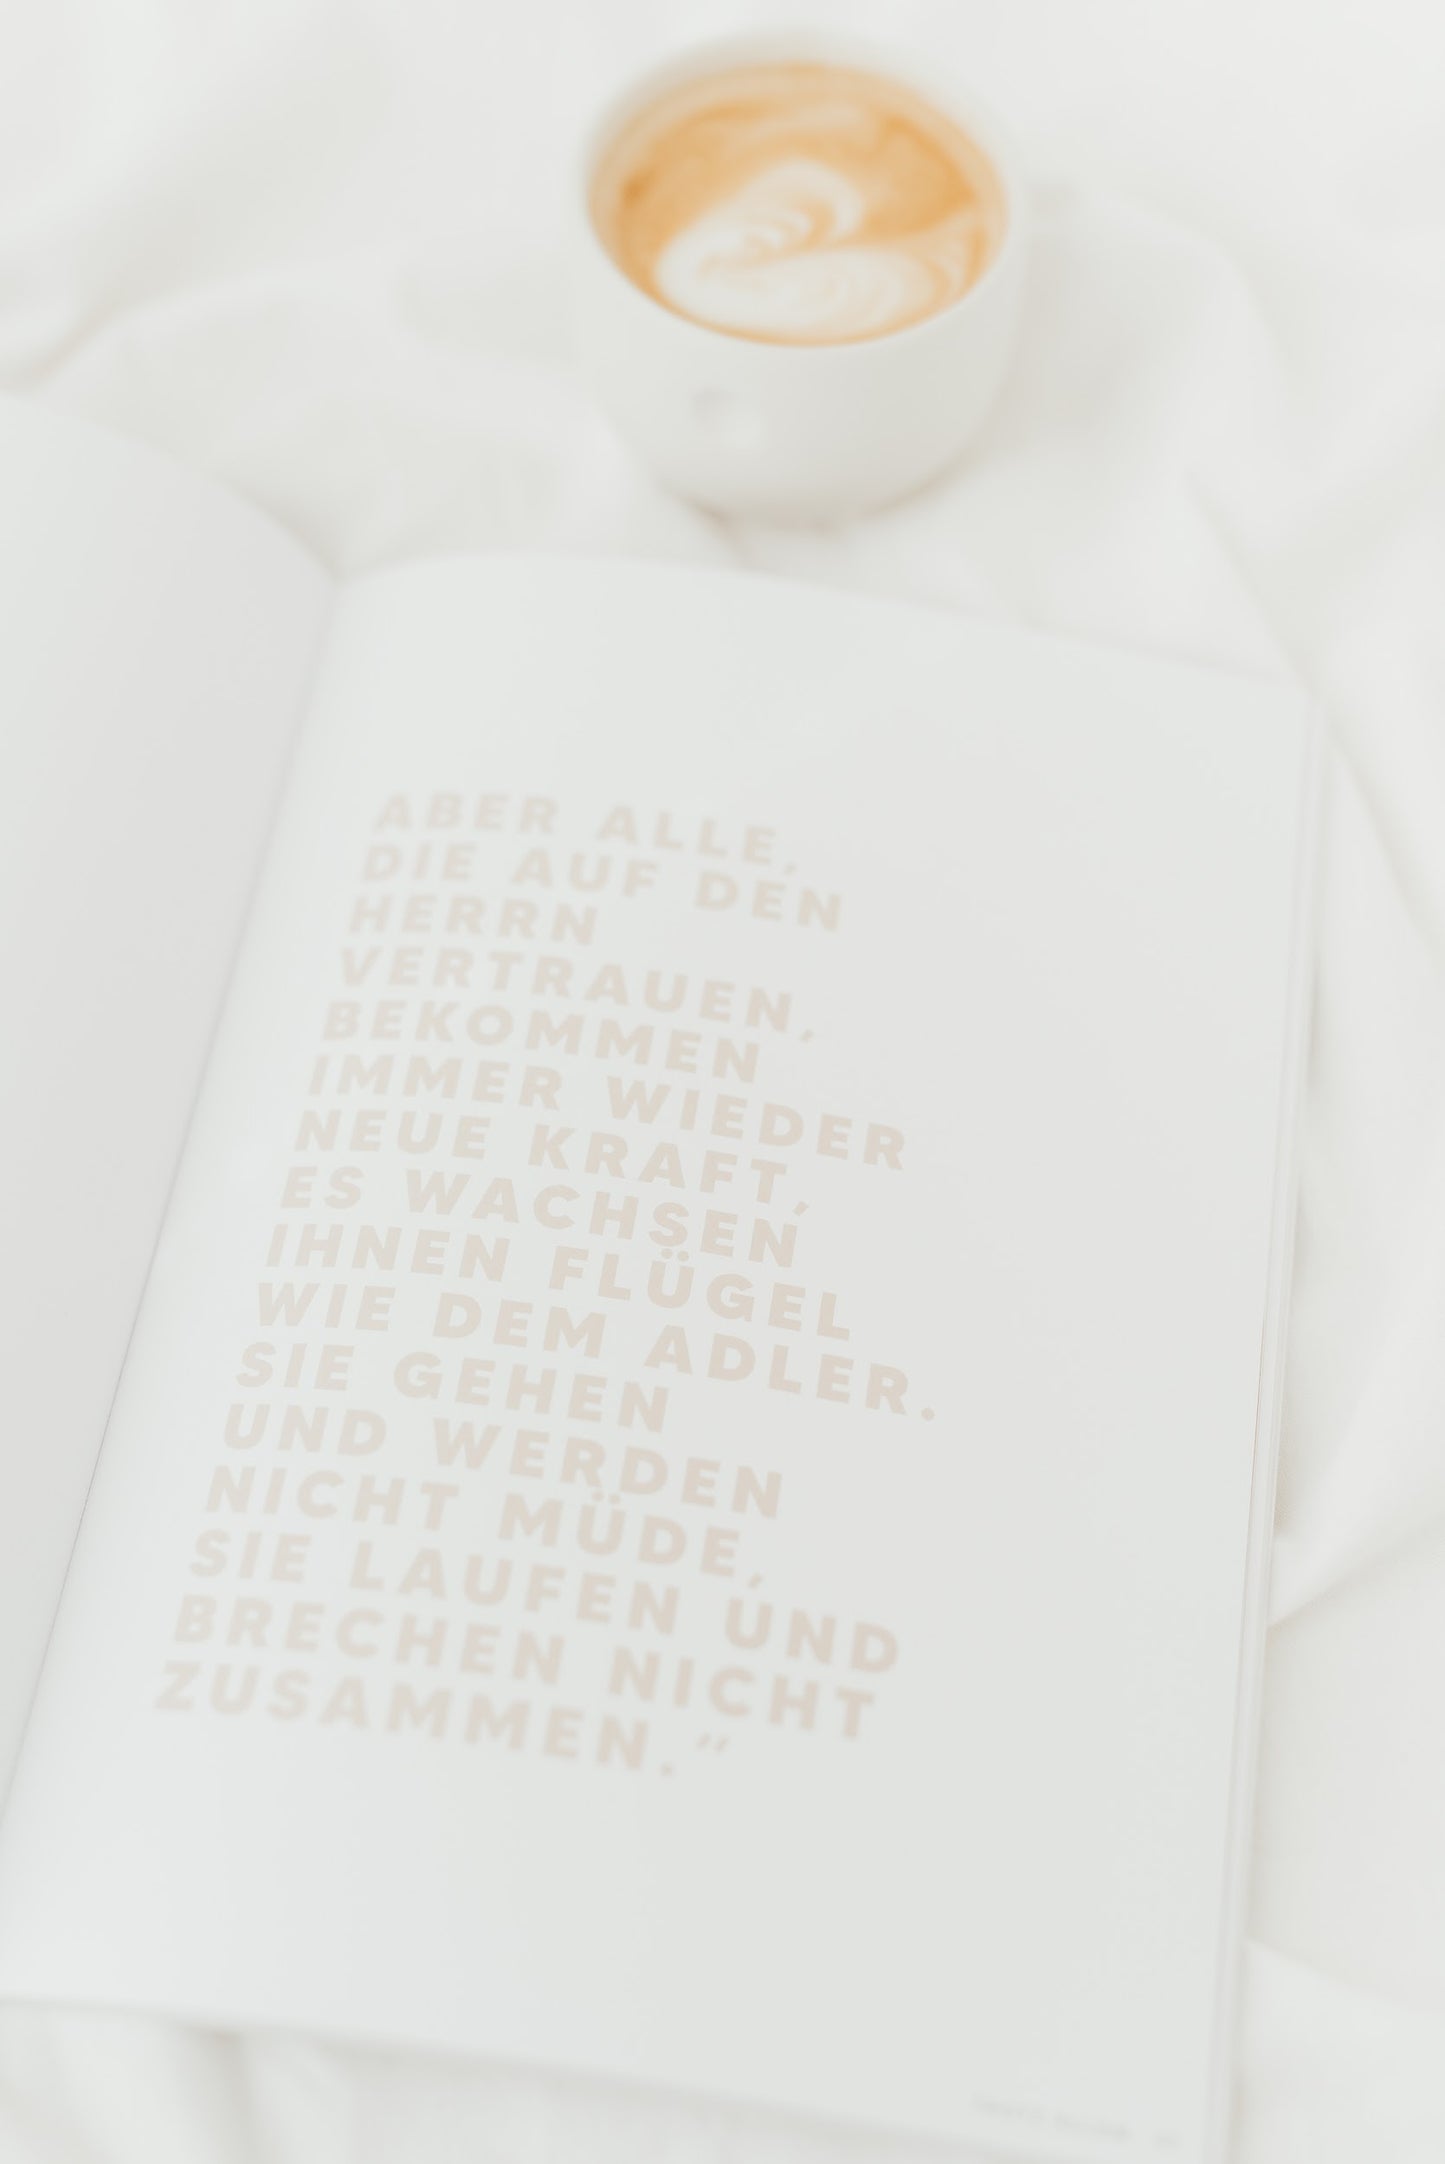 ABER ALLE,
DIE AUF DEN
HERRN
VERTRAUEN,
BEKOMMEN
IMMER WIEDER
NEUE KRAFT,
ES WACHSEN
IHNEN FLÜGEL
WIE DEM ADLER.
SIE GEHEN
UND WERDEN
NICHT MÜDE,
SIE LAUFEN UND
BRECHEN NICHT
ZUSAMMEN.“